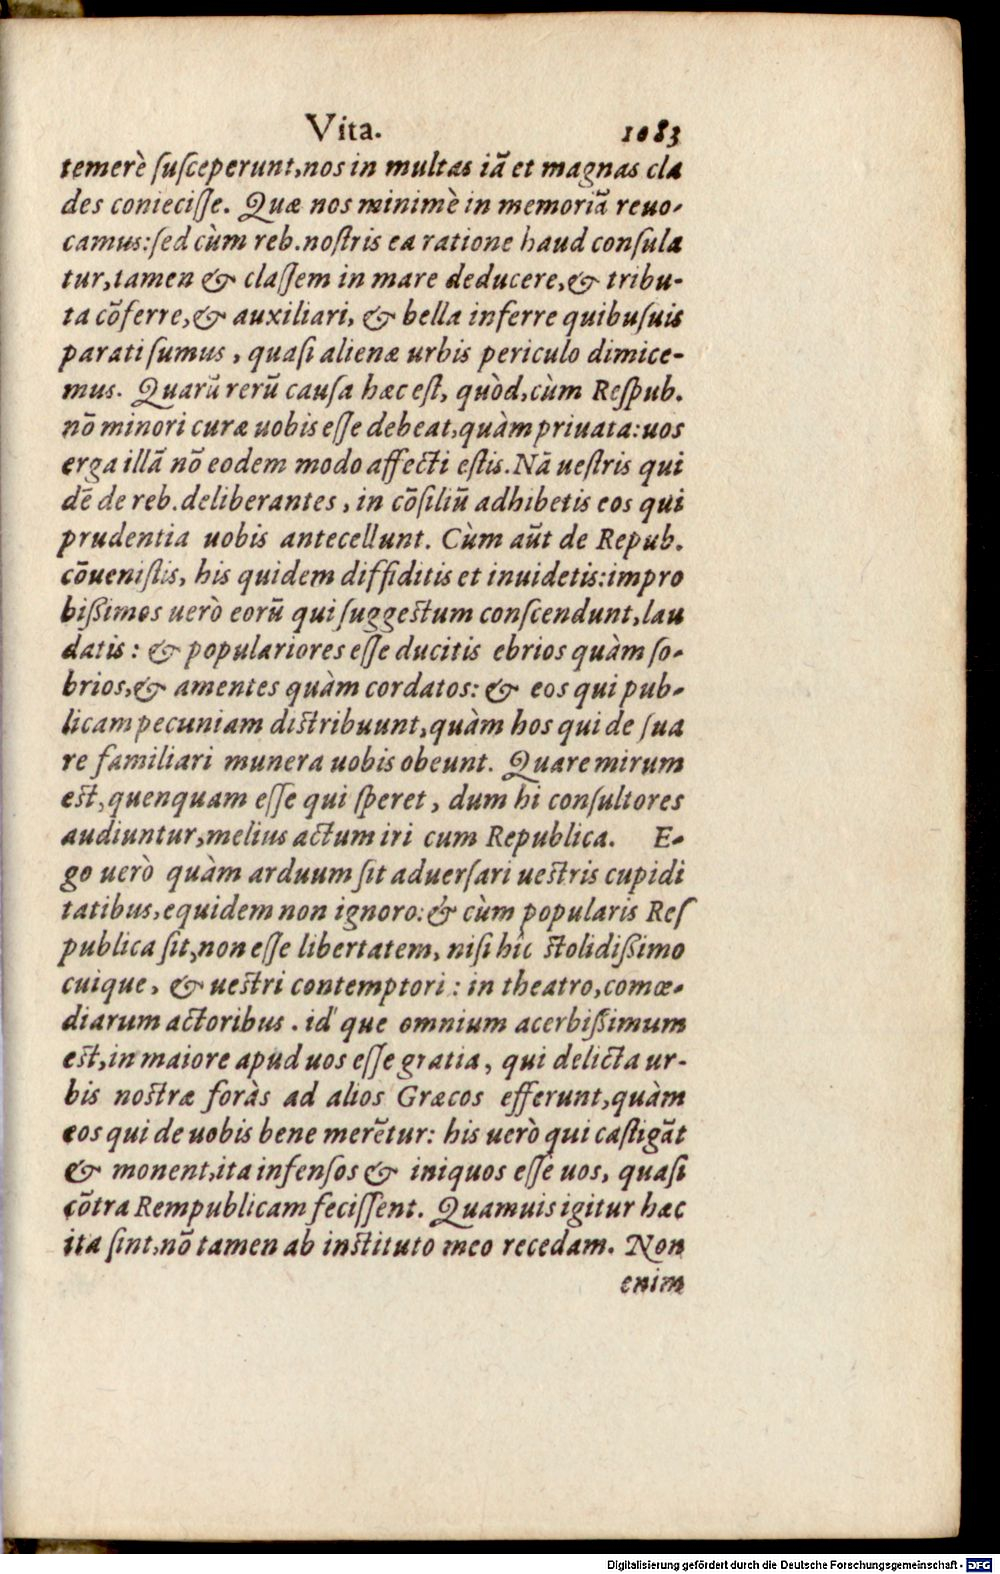 Vita. 1083
temerè ſuſceperunt, nos in multas iã et magnas cla
des conieciſſe. Quæ nos minimè in memoriã reuo-
camus: ſed cùm reb. noſtris ea ratione haud conſula
tur, tamen & claſſem in mare deducere, & tribu-
ta cõferre, & auxiliari, & bella inferre quibuſuis
parati ſumus, quaſi alienæ urbis periculo dimice-
mus. Quarũ rerũ cauſa hæc eſt, quòd, cùm Reſpub.
nõ minori curæ uobis eſſe debeat, quàm priuata: uos
erga illã nõ eodem modo affecti eſtis. Nã ueſtris qui
dẽ de reb. deliberantes, in cõſiliũ adhibetis eos qui
prudentia uobis antecellunt. Cùm aũt de Repub.
cõueniſtis, his quidem diffiditis et inuidetis: impro
bißimos uerò eorũ qui ſuggeſtum conſcendunt, lau
datis: & populariores eſſe ducitis ebrios quàm ſo-
brios, & amentes quàm cordatos: & eos qui pub-
licam pecuniam diſtribuunt, quàm hos qui de ſua
re familiari munera uobis obeunt. Quare mirum
eſt, quenquam eſſe qui ſperet, dum hi conſultores
audiuntur, melius actum iri cum Republica. E-
go uerò quàm arduum ſit aduerſari ueſtris cupidi
tatibus, equidem non ignoro: & cùm popularis Reſ
publica ſit, non eſſe libertatem, niſi hîc ſtolidißimo
cuique, & ueſtri contemptori: in theatro, comœ-
diarum actoribus. id'que omnium acerbißimum
eſt, in maiore apud uos eſſe gratia, qui delicta ur-
bis noſtræ foràs ad alios Græcos efferunt, quàm
eos qui de uobis bene merẽtur: his uerò qui caſtigãt
& monent, ita infenſos & iniquos eſſe uos, quaſi
cõtra Rempublicam feciſſent. Quamuis igitur hæc
ita ſint, nõ tamen ab inſtituto meo recedam. Non
enim
Digitalisierung gefördert durch die Deutsche Forschungsgemeinschaft - DFG